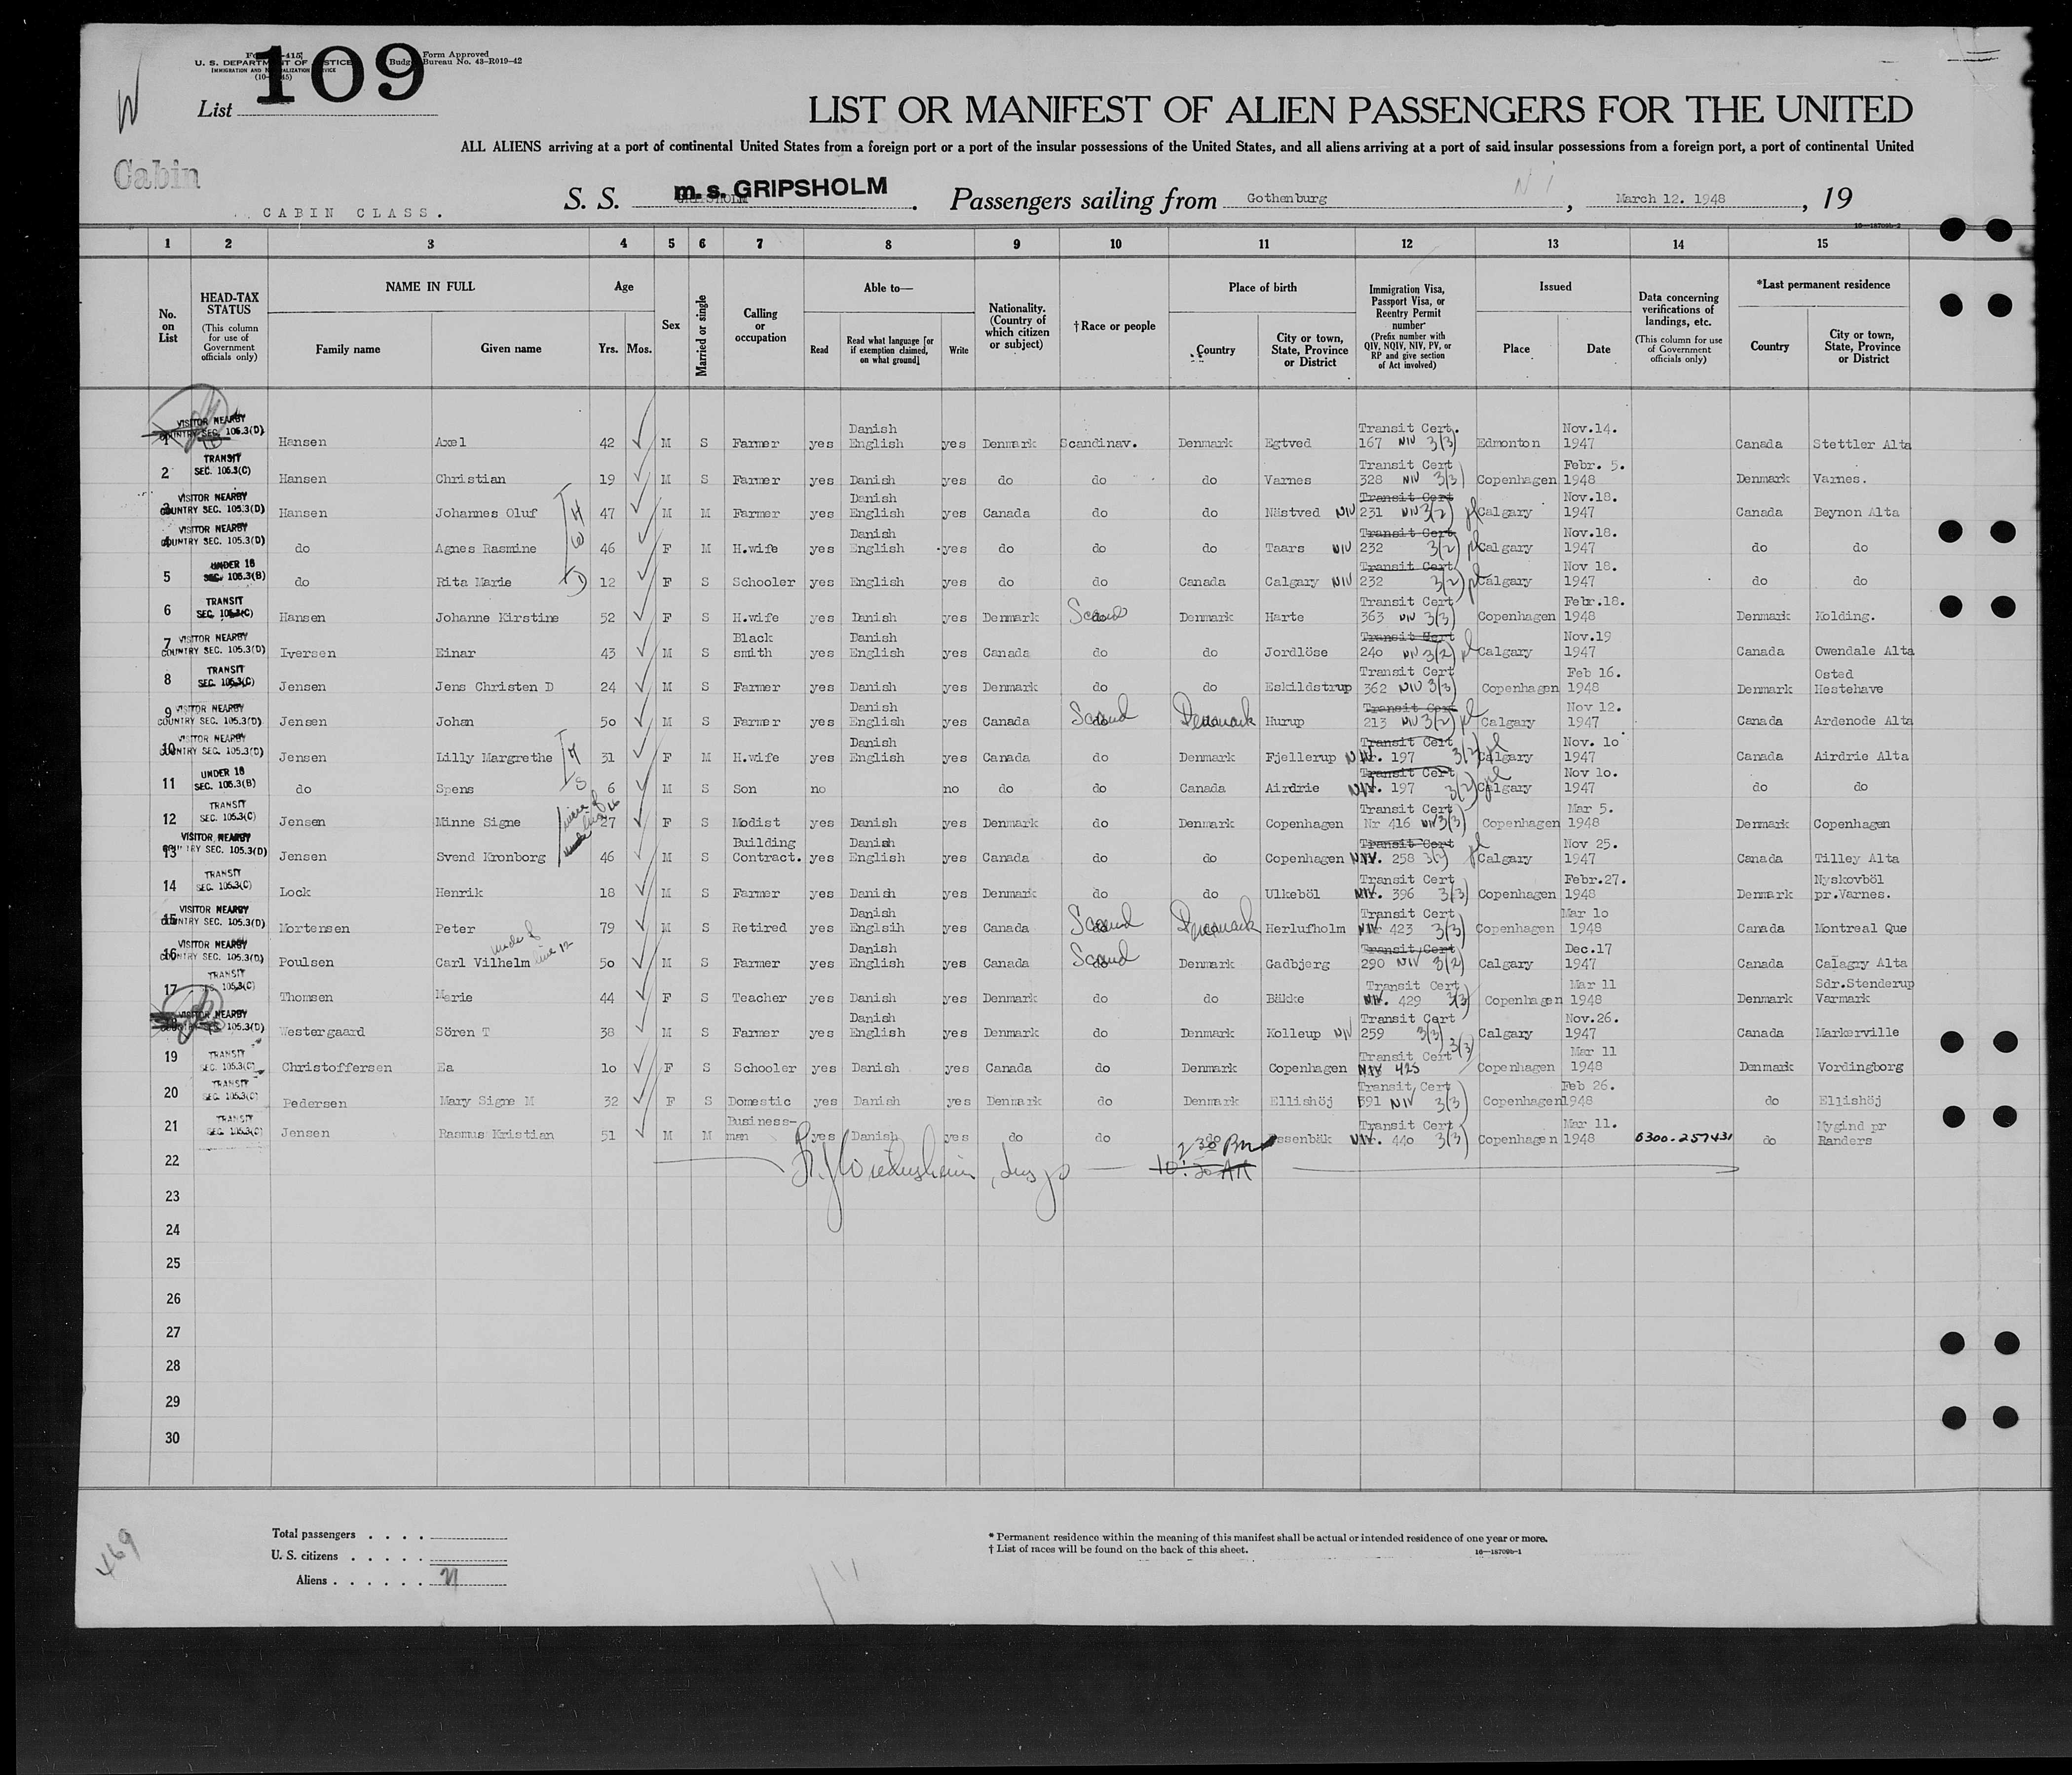 Form Approved
U. S. DEPARTMENT OF JUSTICE
Budget Bureau No. 43-R019-42
List 109
LIST OR MANIFEST OF ALIEN PASSENGERS FOR THE UNITED
ALL ALIENS arriving at a port of continental United States from a foreign port or a port of the insular possessions of the United States, and all aliens arriving at a port of said insular possessions from a foreign port, a port of continental United
Cabin
CABIN CLASS.
S. S. m. s. GRIPSHOLM . Passengers sailing from Gothenburg , March 12. 1948 , 19
1 2 3 4 5 6 7 8 9 10 11 12 13 14 15
No. on List
HEAD-TAX STATUS (This column for use of Government officials only)
NAME IN FULL Family name Given name
Age Yrs. Mos.
Sex
Married or single
Calling or occupation
Able to— Read Read what language [or if exemption claimed, on what ground] Write
Nationality. (Country of which citizen or subject)
†Race or people
Place of birth Country City or town, State, Province or District
Immigration Visa, Passport Visa, or Reentry Permit number (Prefix number with QIV, NQIV, NIV, PV, or RP and give section of Act involved)
Issued Place Date
Data concerning verifications of landings, etc. (This column for use of Government officials only)
*Last permanent residence Country City or town, State, Province or District
1 VISITOR NEARBY COUNTRY SEC. 105.3(D) Hansen Axel 42 M S Farmer yes Danish English yes Denmark Scandinav. Denmark Egtved Transit Cert. 167 NIV 3(3) Edmonton Nov.14. 1947 Canada Stettler Alta
2 TRANSIT SEC. 105.3(C) Hansen Christian 19 M S Farmer yes Danish yes do do do Varnes Transit Cert 328 NIV 3(3) Copenhagen Febr. 5. 1948 Denmark Varnes.
3 VISITOR NEARBY COUNTRY SEC. 105.3(D) Hansen Johannes Oluf 47 M M Farmer yes Danish English yes Canada do do Nästved NIV Transit Cert 231 NIV 3(2) Calgary Nov.18. 1947 Canada Beynon Alta
4 VISITOR NEARBY COUNTRY SEC. 105.3(D) do Agnes Rasmine 46 F M H.wife yes Danish English yes do do do Taars NIV Transit Cert 232 3(2) Calgary Nov.18. 1947 do do
5 UNDER 16 SEC. 105.3(B) do Rita Marie 12 F S Schooler yes English yes do do Canada Calgary NIV Transit Cert 232 3(2) Calgary Nov 18. 1947 do do
6 TRANSIT SEC. 105.3(C) Hansen Johanne Kirstine 52 F S H.wife yes Danish yes Denmark Scand Denmark Harte Transit Cert 363 NIV 3(3) Copenhagen Febr.18. 1948 Denmark Kolding.
7 VISITOR NEARBY COUNTRY SEC. 105.3(D) Iversen Einar 43 M S Black smith yes Danish English yes Canada do do Jordlöse Transit Cert 240 NIV 3(2) Calgary Nov.19 1947 Canada Owendale Alta
8 TRANSIT SEC. 105.3(C) Jensen Jens Christen D 24 M S Farmer yes Danish yes Denmark do do Eskildstrup Transit Cert 362 NIV 3(3) Copenhagen Feb 16. 1948 Denmark Osted Hestehave
9 VISITOR NEARBY COUNTRY SEC. 105.3(D) Jensen Johan 50 M S Farmer yes Danish English yes Canada Scand Denmark Hurup Transit Cert 213 NIV 3(2) Calgary Nov 12. 1947 Canada Ardenode Alta
10 VISITOR NEARBY COUNTRY SEC. 105.3(D) Jensen Lilly Margrethe 31 F M H.wife yes Danish English yes Canada do Denmark Fjellerup Transit Cert NIV. 197 3(2) Calgary Nov. 10 1947 Canada Airdrie Alta
11 UNDER 16 SEC. 105.3(B) do Spens 6 M S Son no no do do Canada Airdrie Transit Cert NIV. 197 3(2) Calgary Nov 10. 1947 do do
12 TRANSIT SEC. 105.3(C) Jensen Minne Signe 27 F S Modist yes Danish yes Denmark do Denmark Copenhagen Transit Cert Nr 416 NIV 3(3) Copenhagen Mar 5. 1948 Denmark Copenhagen
13 VISITOR NEARBY COUNTRY SEC. 105.3(D) Jensen Svend Kronborg 46 M S Building Contract. yes Danish English yes Canada do do Copenhagen Transit Cert NIV. 258 Calgary Nov 25. 1947 Canada Tilley Alta
14 TRANSIT SEC. 105.3(C) Lock Henrik 18 M S Farmer yes Danish yes Denmark do do Ulkeböl Transit Cert NIV. 396 3(3) Copenhagen Febr.27. 1948 Denmark Nyskovböl pr.Varnes.
15 VISITOR NEARBY COUNTRY SEC. 105.3(D) Mortensen Peter 79 M S Retired yes Danish Englsih yes Canada Scand Denmark Herlufholm Transit Cert NIV 423 3(3) Copenhagen Mar 10 1948 Canada Montreal Que
16 VISITOR NEARBY COUNTRY SEC. 105.3(D) Poulsen Carl Vilhelm 50 M S Farmer yes Danish English yes Canada Scand Denmark Gadbjerg Transit Cert 290 NIV 3(2) Calgary Dec.17 1947 Canada Calagry Alta
17 TRANSIT SEC. 105.3(C) Thomsen Marie 44 F S Teacher yes Danish yes Denmark do do Bäkke Transit Cert NIV. 429 3(3) Copenhagen Mar 11 1948 Denmark Sdr.Stenderup Varmark
18 VISITOR NEARBY COUNTRY SEC. 105.3(D) Westergaard Sören T 38 M S Farmer yes Danish English yes Denmark do Denmark Kolleup NIV Transit Cert 259 3(3) Calgary Nov.26. 1947 Canada Markerville
19 TRANSIT SEC. 105.3(C) Christoffersen Ea 10 F S Schooler yes Danish yes Canada do Denmark Copenhagen Transit Cert 3(3) NIV 425 Copenhagen Mar 11 1948 Denmark Vordingborg
20 TRANSIT SEC. 105.3(C) Pedersen Mary Signe M 32 F S Domestic yes Danish yes Denmark do Denmark Ellishöj Transit Cert 391 NIV 3(3) Copenhagen Feb 26. 1948 do Ellishöj
21 TRANSIT SEC. 105.3(C) Jensen Rasmus Kristian 51 M M Business-man yes Danish yes do do do Essenbäk Transit Cert NIV. 440 3(3) Copenhagen Mar 11. 1948 0300-257431 do Mygind pr Randers
22 2 30 PM
10:30 AM
23
24
25
26
27
28
29
30
Total passengers . . . .
U. S. citizens . . . . .
Aliens . . . . . . 21
469
* Permanent residence within the meaning of this manifest shall be actual or intended residence of one year or more.
† List of races will be found on the back of this sheet.
16—18709b-1